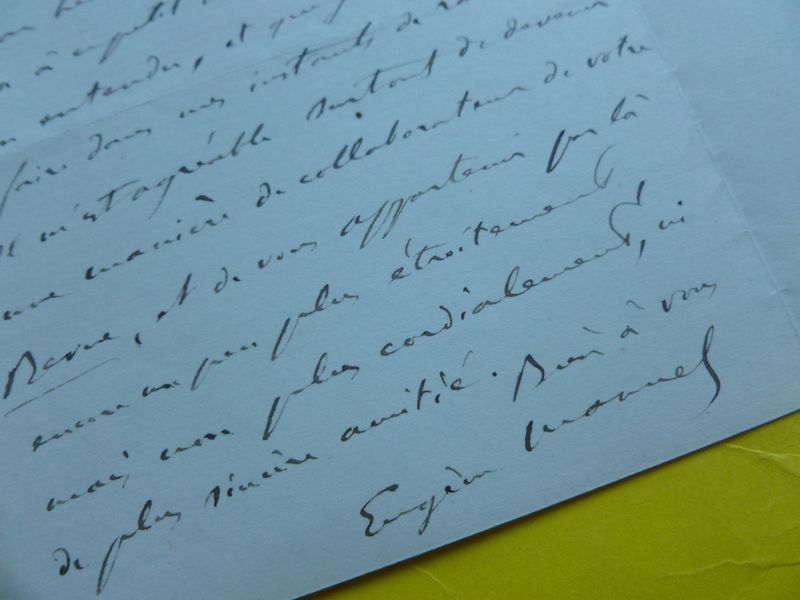 à un petit
entendu, et que
faire dans mes instants de
Il m'est agréable surtout de devenir
une manière de collaborateur de votre
Revue, et de vous appartenir par là
encore un peu plus étroitement,
mais non plus cordialement, ni
de plus sincère amitié. Bien à vous
Eugène Manuel